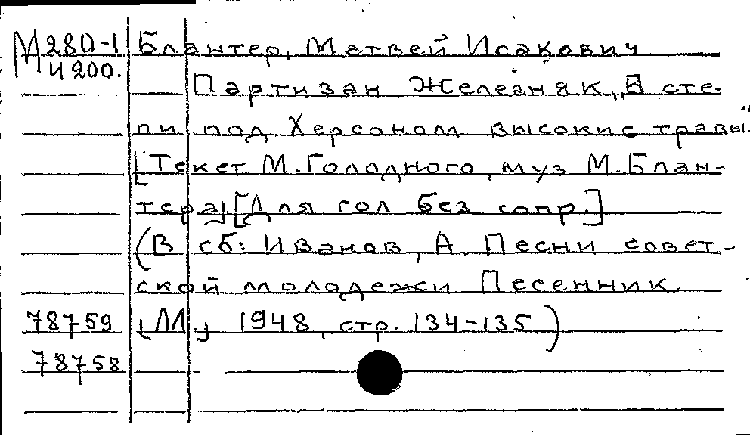 М280-1 Блантер, Матвей Исакович
И200.
Партизан Железняк „В сте-
пи под Херсоном высокие травы".
[Текст М. Голодного, муз М. Блан-
тера] [Для гол без сопр.]
(В сб: Иванов, А. Песни совет-
ской молодежи Песенник.
78759 [М.] 1948, стр. 134-135)
78758